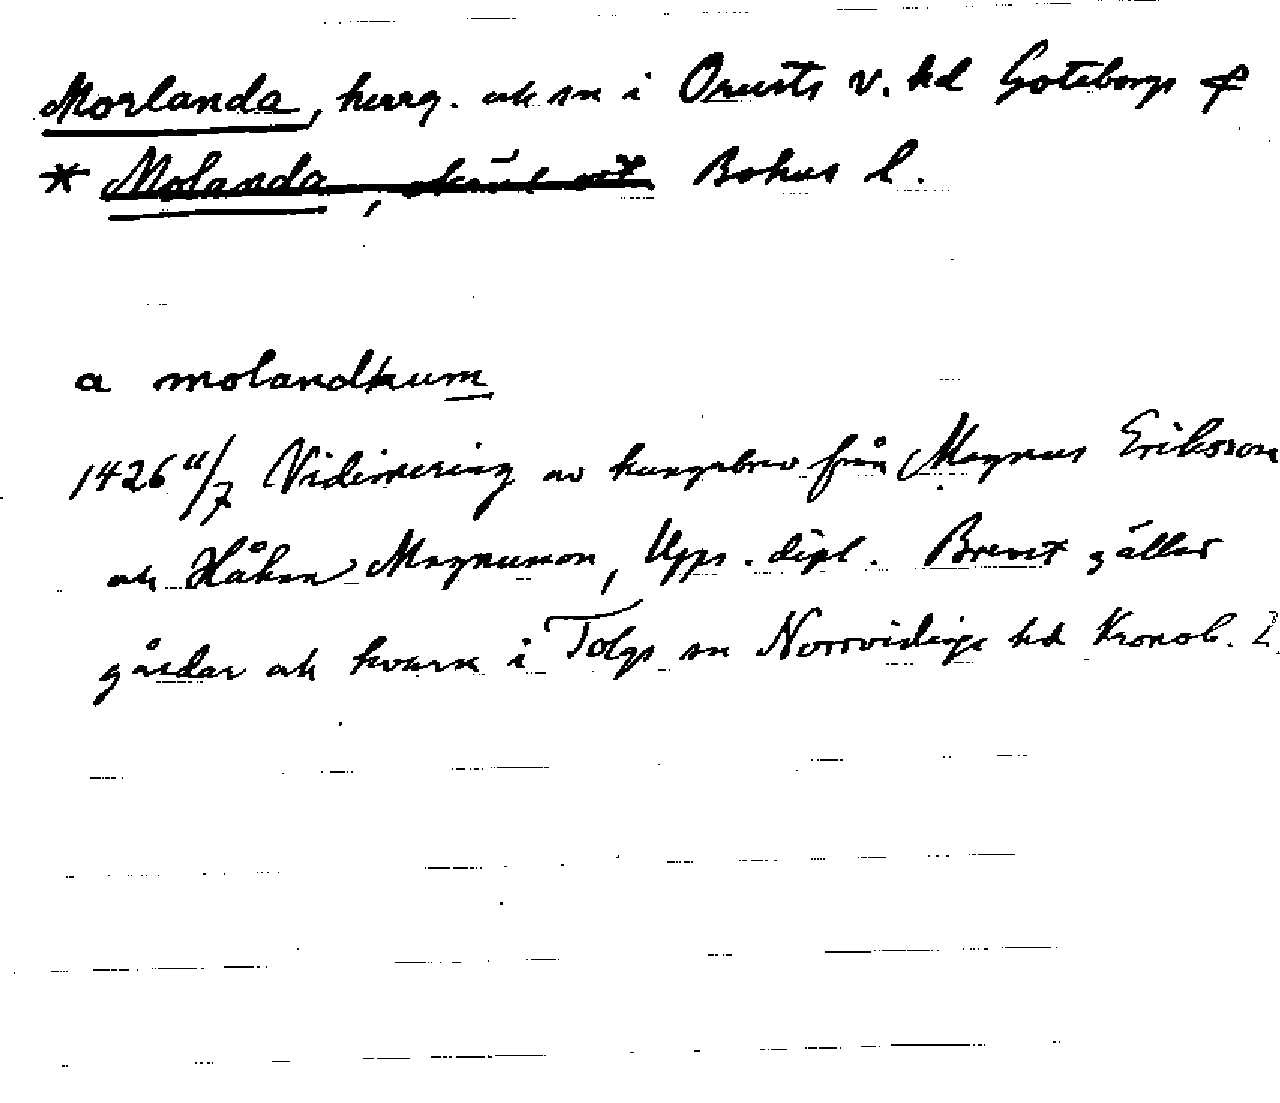 Morlanda, herrg. och sn i Orusts v. hd Göteborgs o
* Molanda, okänt ort Bohus l.
a molandhum
1426 11/7 Vidimering av kungabrev från Magnus Eriksson
och Håkan Magnusson, Upps. dipl. Brevet gäller
gårdar och kvarn i Tolgs sn Norrvidinge hd Kronob. l.